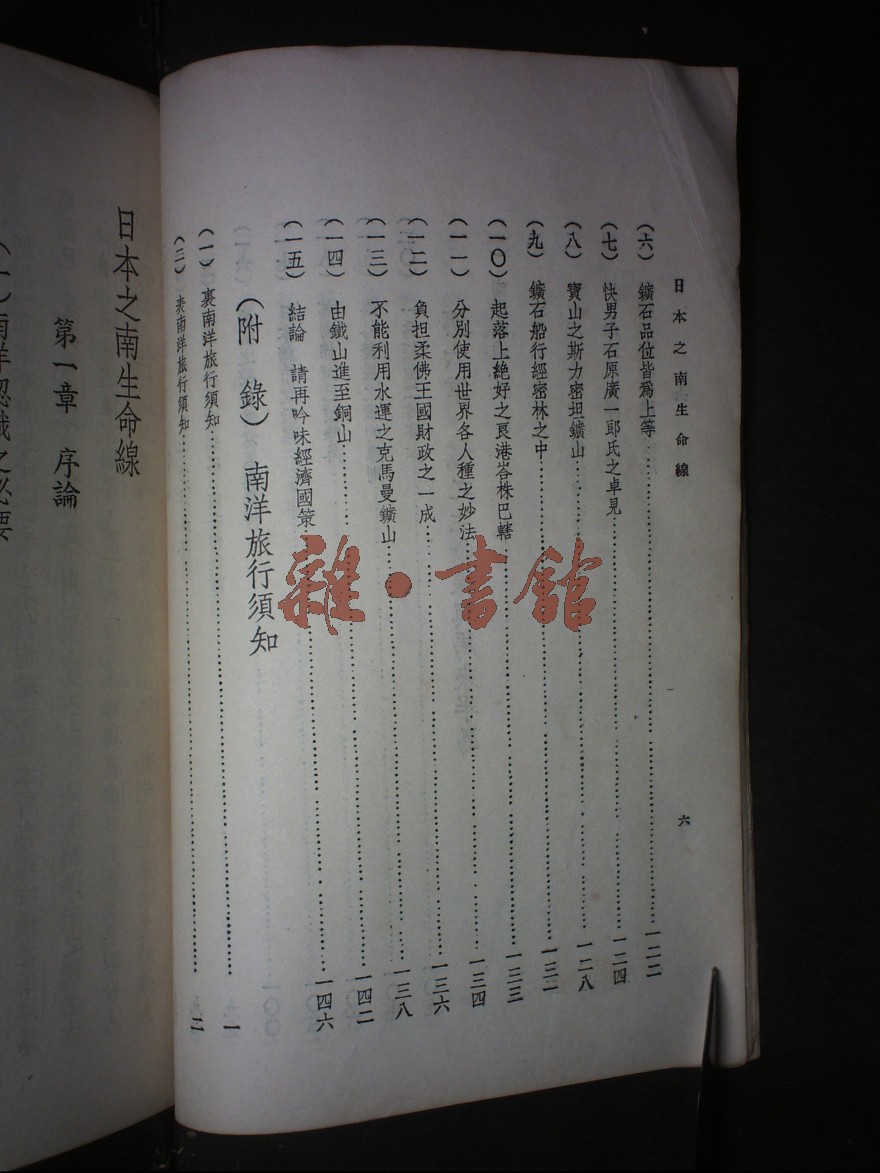 日本之南生命線
六
(六) 鑛石品位皆爲上等 一二二
(七) 快男子石原廣一郎氏之卓見 一二四
(八) 寶山之斯力密坦鑛山 一二八
(九) 鑛石船行經密林之中 一三一
(一〇) 起落上絶好之良港峇株巴轄 一三三
(一一) 分別使用世界各人種之妙法 一三四
(一二) 負担柔佛王國財政之一成 一三六
(一三) 不能利用水運之克馬曼鑛山 一三八
(一四) 由鐵山進至銅山 一四二
(一五) 結論 請再吟味經濟國策 一四六
(附錄) 南洋旅行須知
(一) 裏南洋旅行須知 一
(二) 表南洋旅行須知 二
日本之南生命線
第一章 序論
(一) 南洋認識之必要
雜·書館